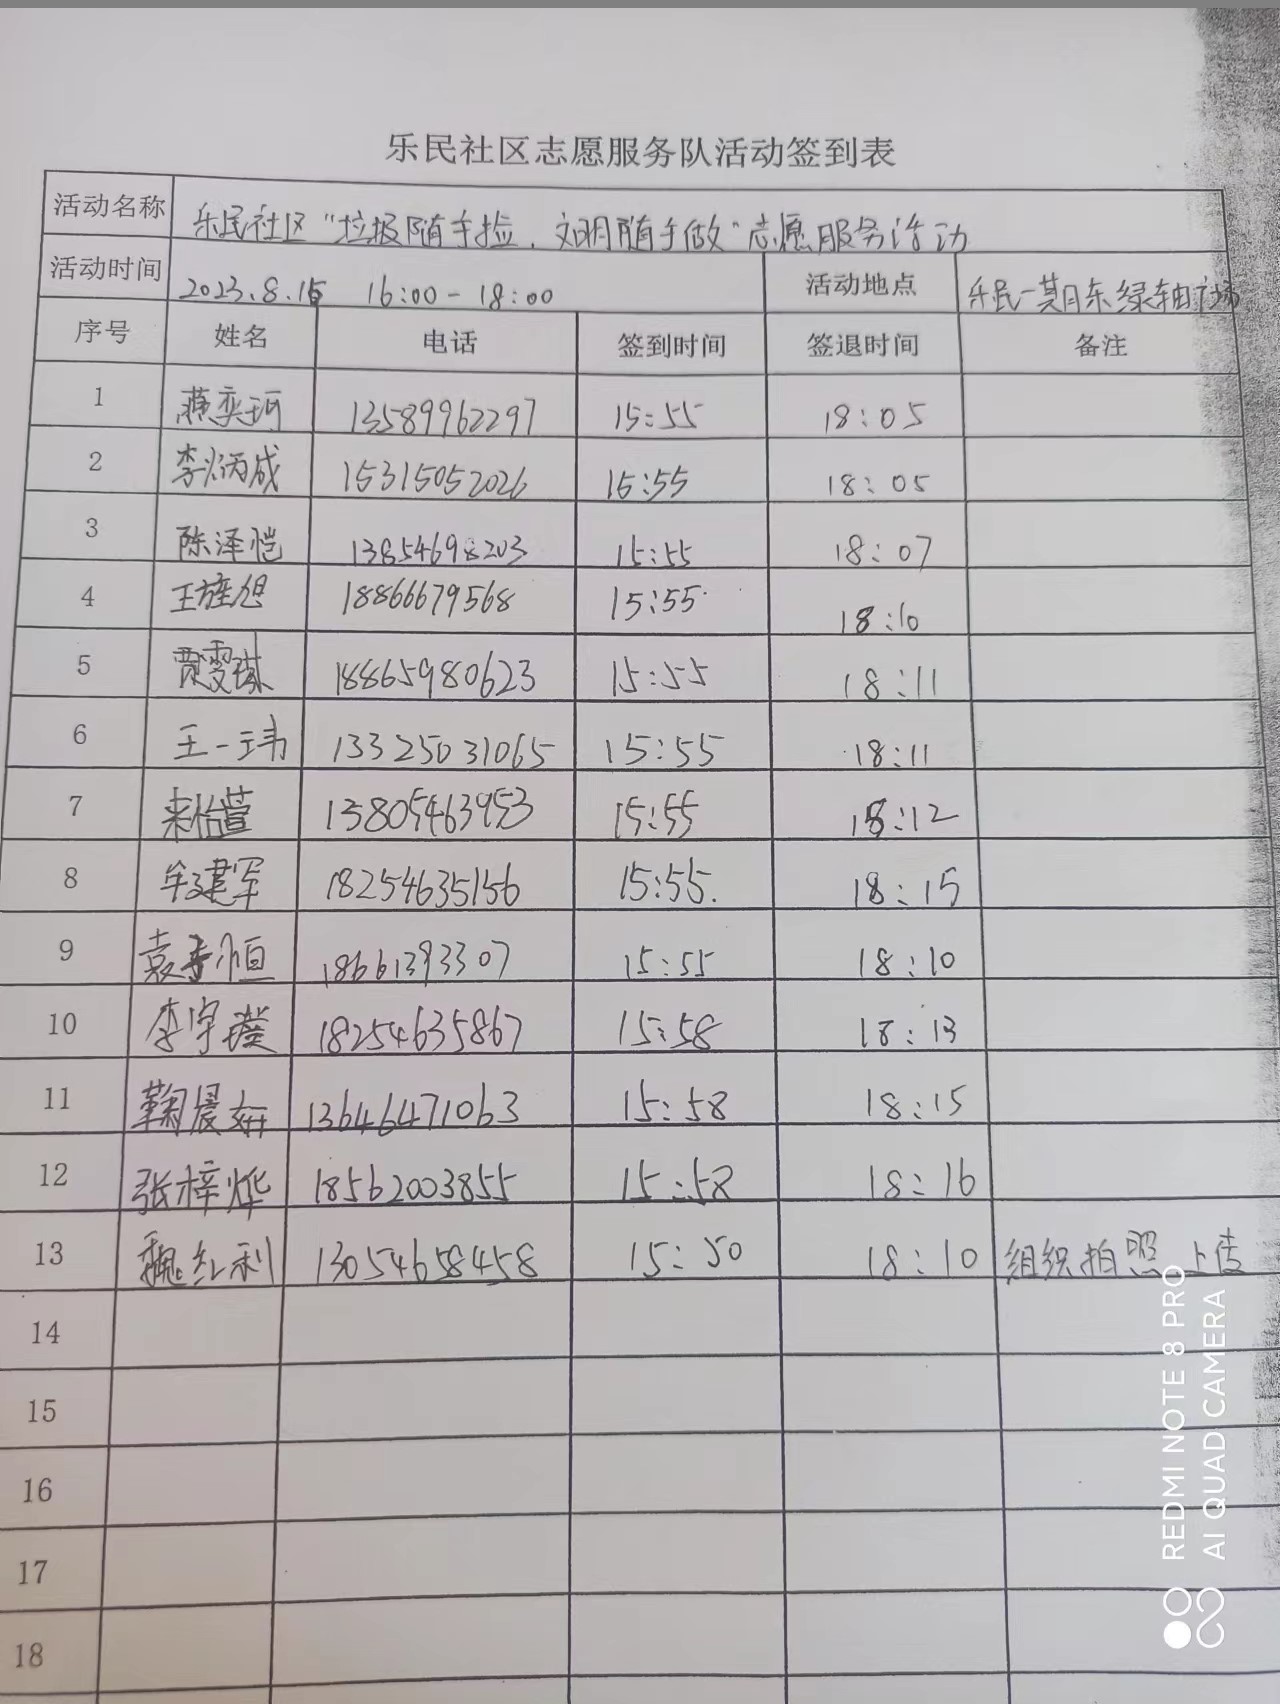 乐民社区志愿服务队活动签到表
活动名称 乐民社区"垃圾随手捡、文明随手做"志愿服务活动
活动时间 2023.8.15 16:00-18:00 活动地点 乐民一期东绿轴广场
序号 姓名 电话 签到时间 签退时间 备注
1 燕奕珂 13589962297 15:55 18:05
2 李炳成 15315052026 15:55 18:05
3 陈泽恺 13854698203 15:55 18:07
4 王旌旭 18866679568 15:55 18:10
5 贾雯琪 18865980623 15:55 18:11
6 王一玮 13325031065 15:55 18:11
7 来怡萱 13805463953 15:55 18:12
8 牟建军 18254635156 15:55 18:15
9 袁 恒 18661393307 15:55 18:10
10 李宇璞 18254635867 15:58 18:13
11 鞠晨妍 13646471063 15:58 18:15
12 张梓烨 18562003855 15:58 18:16
13 魏红利 13054658458 15:50 18:10 组织拍照上传
14
15
16
17
18
REDMI NOTE 8 PRO
AI QUAD CAMERA